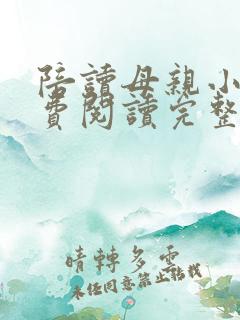 陪讀母親小
費閱讀完整
晴轉多雲
未經同意禁止轉載